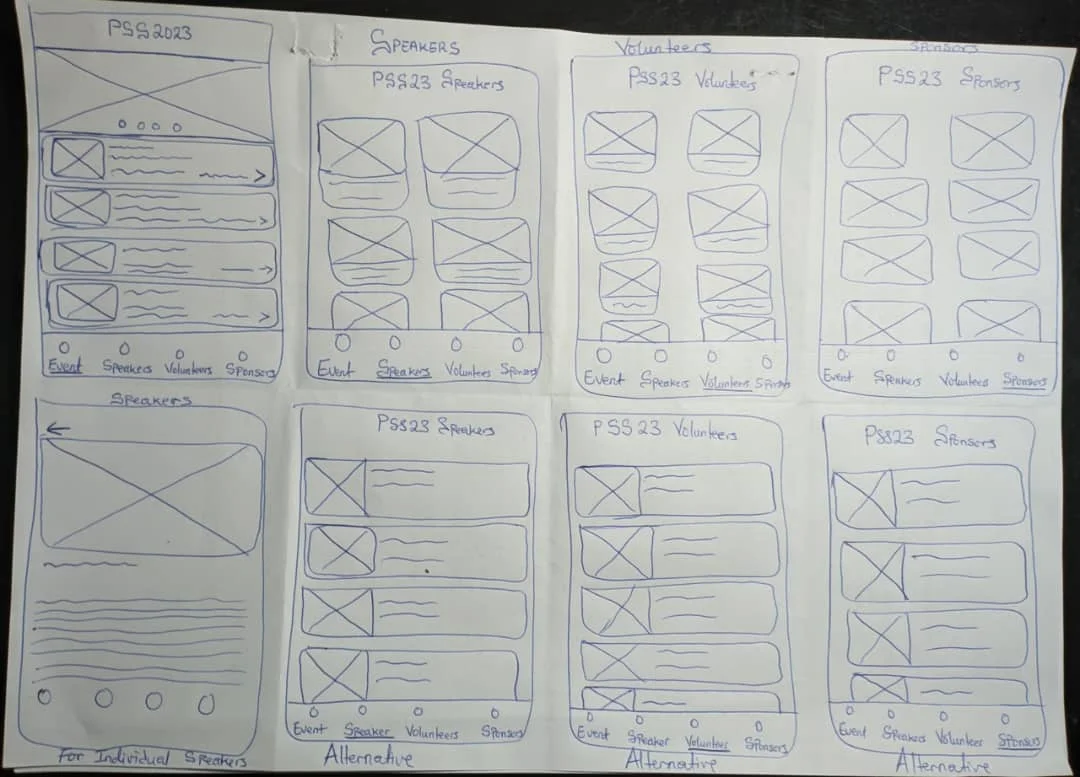 PSS2023
Event Speakers Volunteers Sponsors
SPEAKERS
PSS23 Speakers
Event Speakers Volunteers Sponsors
Volunteers
PSS23 Volunteers
Event Speakers Volunteers Sponsors
Sponsors
PSS23 Sponsors
Event Speakers Volunteers Sponsors
Speakers
For Individual Speakers
PSS23 Speakers
Event Speaker Volunteers Sponsors
Alternative
PSS23 Volunteers
Event Speaker Volunteer Sponsors
Alternative
PSS23 Sponsors
Event Speakers Volunteer Sponsors
Alternative